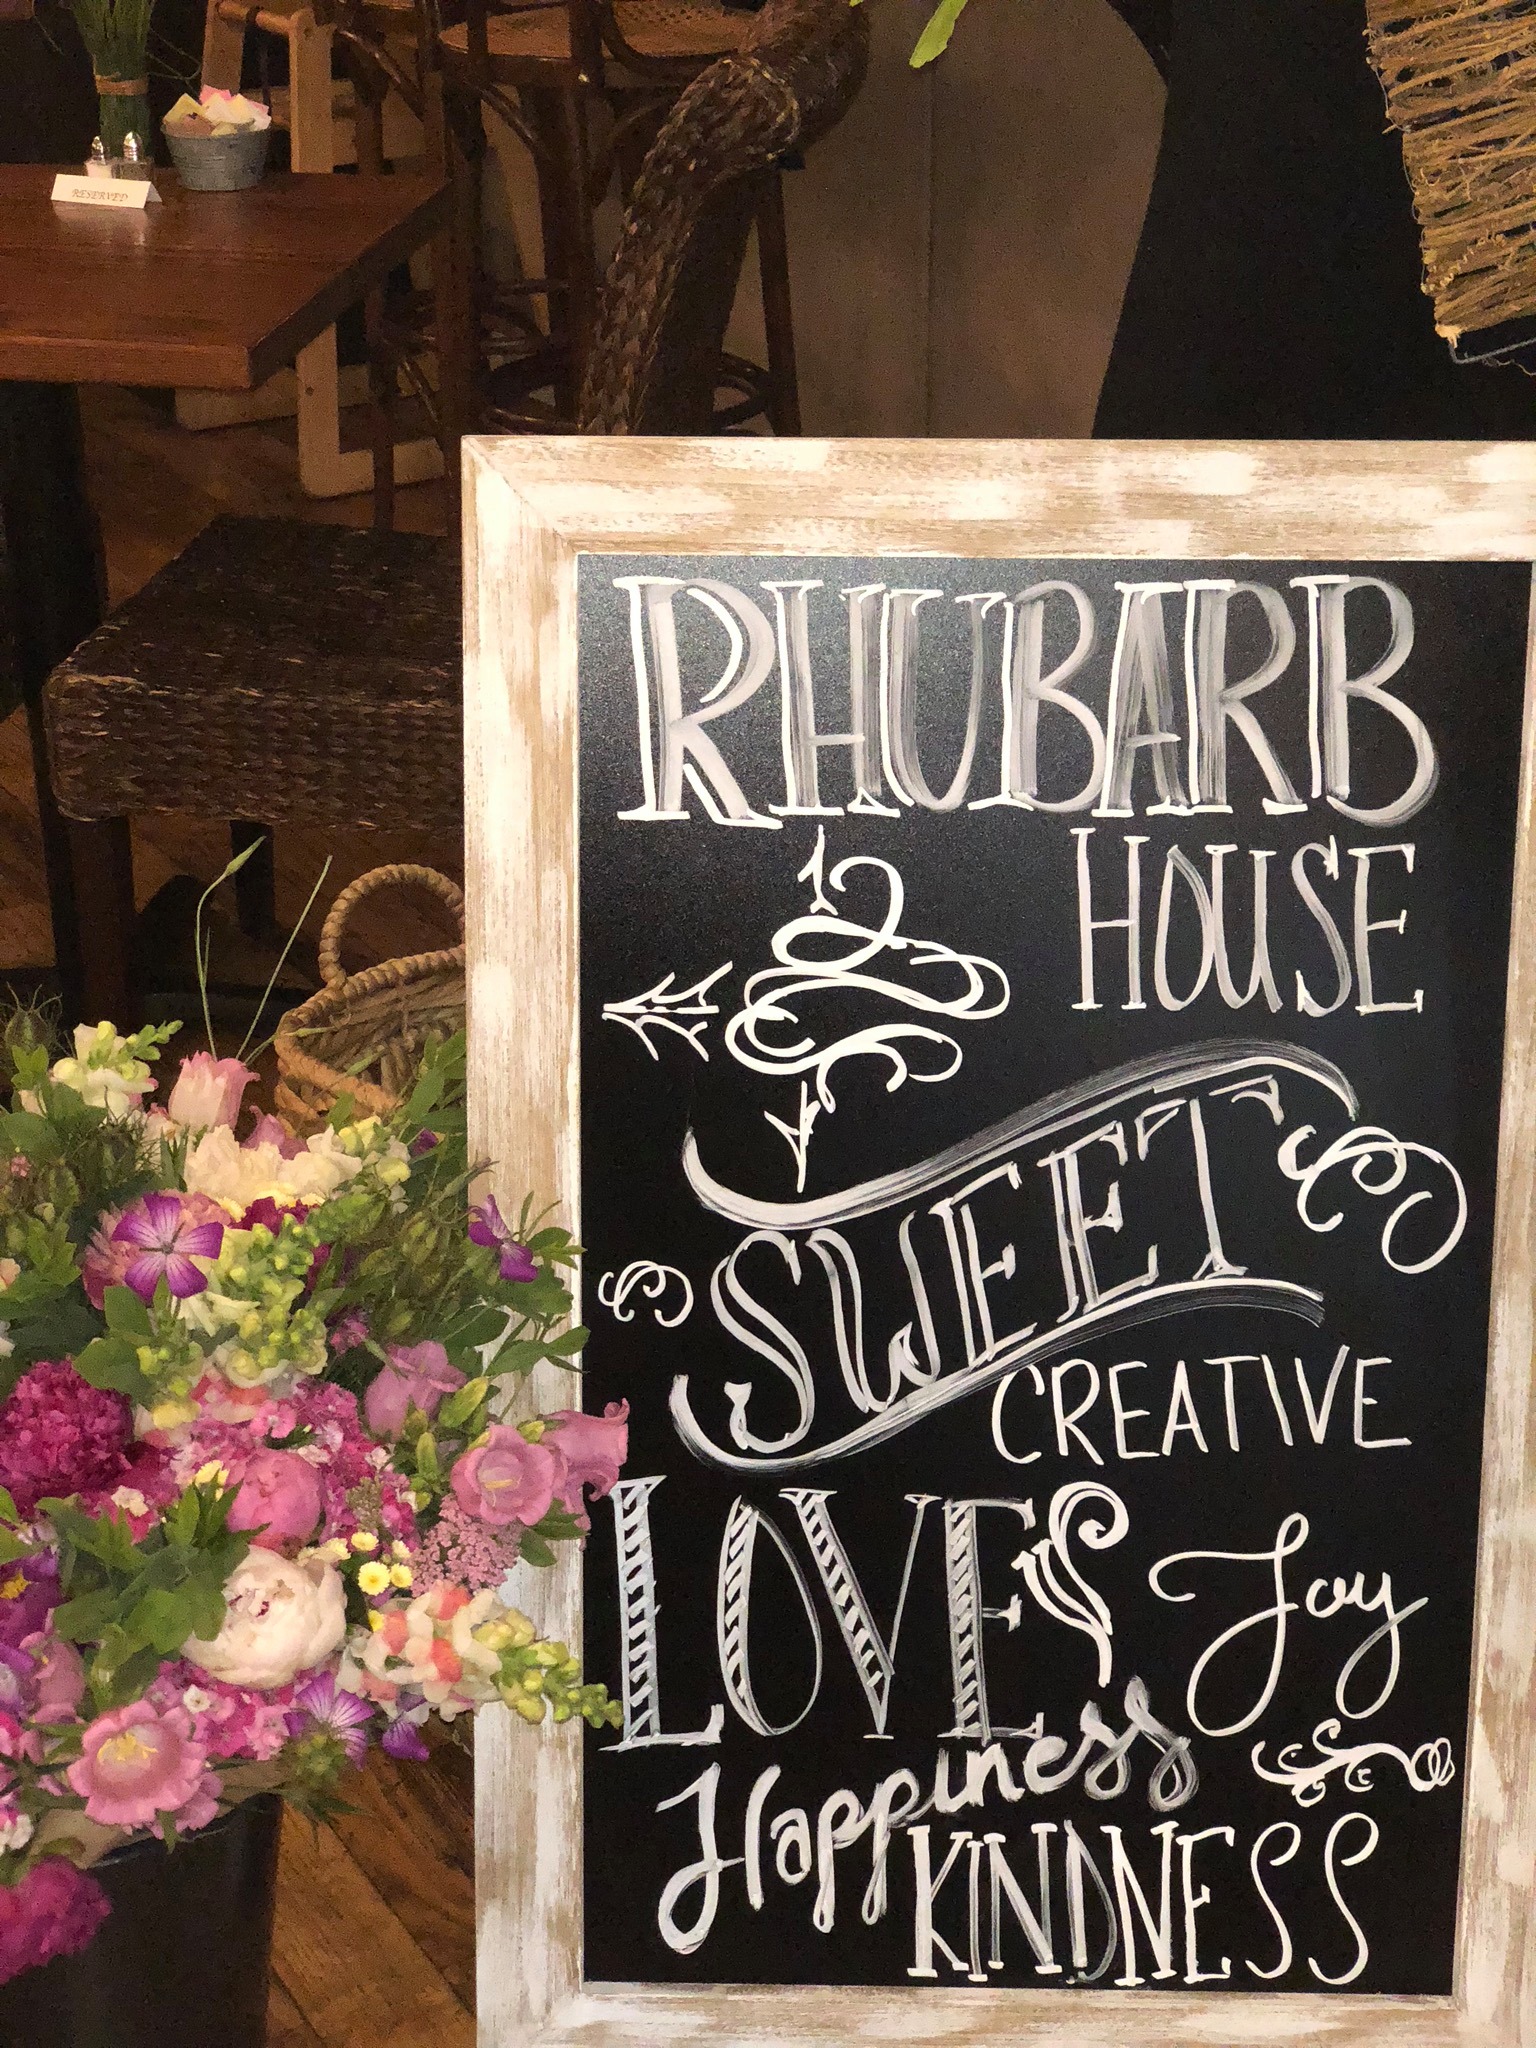 RESERVED
RHUBARB
HOUSE
SWEET
CREATIVE
LOVE
Joy
Happiness
KINDNESS